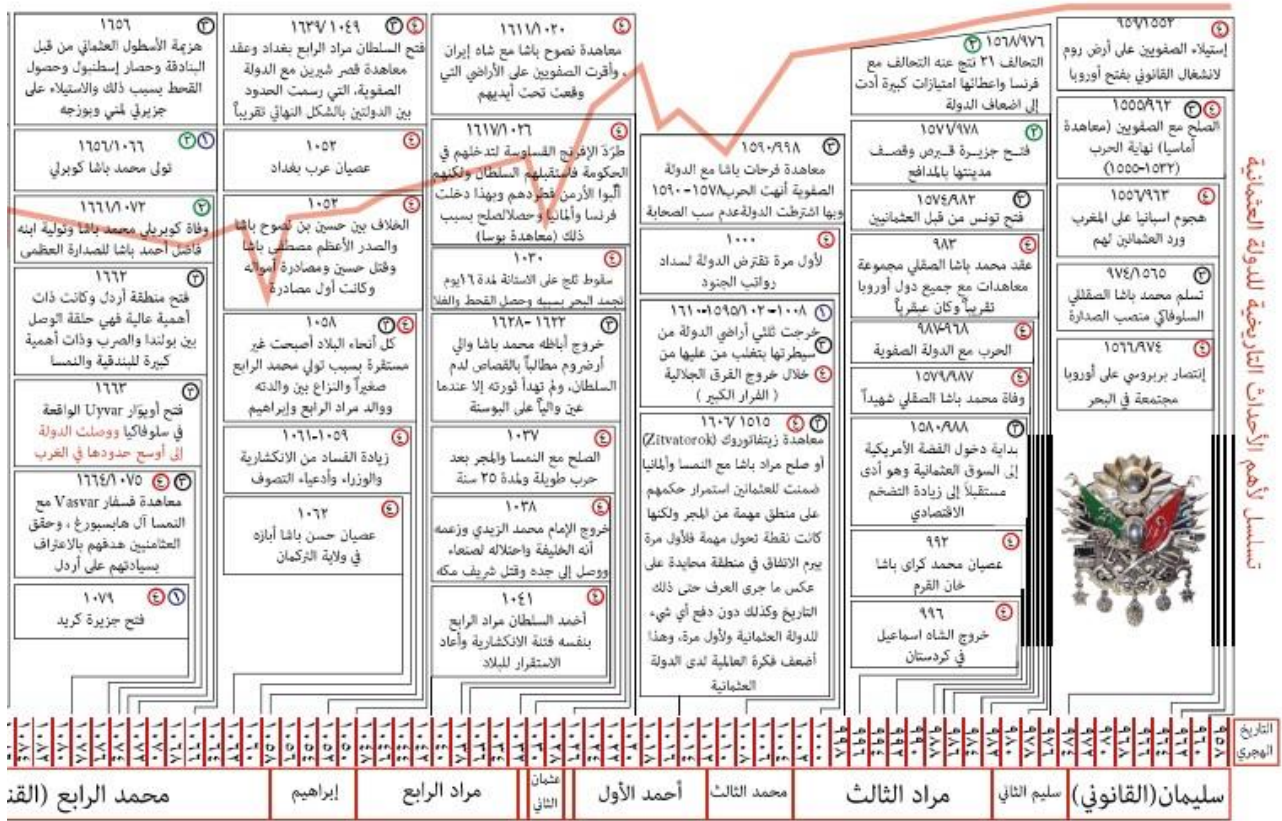 تسلسل لأهم الأحداث التاريخية للدولة العثمانية
٩٥٩/١٥٥٢ ٤
إستيلاء الصفويين على أرض روم
لانشغال القانوني بفتح أوروبا
١٥٥٥/٩٦٢ ٣ ٤
الصلح مع الصفويين (معاهدة
أماسيا) نهاية الحرب
(١٥٣٢-١٥٥٥)
١٥٥٦/٩٦٣ ٤
هجوم اسبانيا على المغرب
ورد العثمانين لهم
٩٧٤/١٥٦٥ ٣
تسلم محمد باشا الصقللي
السلوفاكي منصب الصدارة
١٥٦٦/٩٧٤ ٤
إنتصار بربروسي على أوروبا
مجتمعة في البحر
١٥٦٨/٩٧٦ ٢
التحالف ٢٦ نتج عنه التحالف مع
فرنسا واعطائها امتيازات كبيرة أدت
إلى اضعاف الدولة
١٥٧١/٩٧٨ ٢
فتح جزيرة قبرص وقصف
مدينتها بالمدافع
١٥٧٤/٩٨٢ ٣
فتح تونس من قبل العثمانيين
٩٨٣ ٤
عقد محمد باشا الصقلي مجموعة
معاهدات مع جميع دول أوروبا
تقريباً وكان عبقرياً
٩٨٧-٩٦٨ ٤
الحرب مع الدولة الصفوية
١٥٧٩/٩٨٧ ٤
وفاة محمد باشا الصقلي شهيداً
١٥٨٠/٩٨٨ ٣
بداية دخول الفضة الأمريكية
إلى السوق العثمانية وهو أدى
مستقبلاً إلى زيادة التضخم
الاقتصادي
٩٩٢ ٤
عصيان محمد كراي باشا
خان القرم
٩٩٦ ٤
خروج الشاه اسماعيل
في كردستان
١٥٩٠/٩٩٨ ٣
معاهدة فرحات باشا مع الدولة
الصفوية أنهت الحرب١٥٧٨-١٥٩٠
وبها اشترطت الدولة عدم سب الصحابة
١٠٠٠ ٤
لأول مرة تقترض الدولة لسداد
رواتب الجنود
١٠٠٨-١٥٩٥/١٠٢-١٦١٠ ١
خرجت ثلثي أراضي الدولة من
سيطرتها بتغلب من عليها من ٣
خلال خروج الفرق الجلالية ٤
( الفرار الكبير )
١٥١٥ /١٦٠٦ ٤ ٣
معاهدة زيتفاتوروك (Zitvatorok)
أو صلح مراد باشا مع النمسا وألمانيا
ضمنت للعثمانين استمرار حكمهم
على منطق مهمة من المجر ولكنها
كانت نقطة تحول مهمة فلأول مرة
يبرم الاتفاق في منطقة محايدة على
عكس ما جرى العرف حتى ذلك
التاريخ وكذلك دون دفع أي شيء
للدولة العثمانية ولأول مرة، وهذا
أضعف فكرة العالمية لدى الدولة
العثمانية
١٦١١/١٠٢٠ ٤
معاهدة نصوح باشا مع شاه إيران
، وأقرت الصفويين على الأراضي التي
وقعت تحت أيديهم
١٦١٧/١٠٢٦ ٤
طرد الإفرنج القساوسة لتدخلهم في
الحكومة فاستقبلهم السلطان ولكنهم
ألّبوا الأرمن فطردهم وبهذا دخلت
فرنسا وألمانيا وحصلالصلح بسبب
ذلك (معاهدة بوسا)
١٠٣٠ ٤
سقوط ثلج على الاستانة لمدة ١٦يوم
تجمد البحر بسببه وحصل القحط والغلا
١٦٢٢ -١٦٢٨ ٣
خروج أباظه محمد باشا والي
أرضروم مطالباً بالقصاص لدم
السلطان، ولم تهدأ ثورته إلا عندما
عين والياً على البوسنة
١٠٣٧ ٤
الصلح مع النمسا والمجر بعد
حرب طويلة ولمدة ٢٥ سنة
١٠٣٨ ٤
خروج الإمام محمد الزيدي وزعمه
أنه الخليفة واحتلاله لصنعاء
ووصل إلى جده وقتل شريف مكه
١٠٤١ ٤
أخمد السلطان مراد الرابع
بنفسه فتنة الانكشارية وأعاد
الاستقرار للبلاد
١٦٣٩/١٠٤٩ ٣ ٤
فتح السلطان مراد الرابع بغداد وعقد
معاهدة قصر شيرين مع الدولة
الصفوية، التي رسمت الحدود
بين الدولتين بالشكل النهائي تقريباً
١٠٥٢ ٤
عصيان عرب بغداد
١٠٥٢ ٤
الخلاف بين حسين بن نصوح باشا
والصدر الأعظم مصطفى باشا
وقتل حسين ومصادرة أمواله
وكانت أول مصادرة
١٠٥٨ ٣ ٤
كل أنحاء البلاد أصبحت غير
مستقرة بسبب تولي محمد الرابع
صغيراً والنزاع بين والدته
ووالد مراد الرابع وإبراهيم
١٠٥٩-١٠٦١ ٤
زيادة الفساد من الانكشارية
والوزراء وأدعياء التصوف
١٠٦٢ ٤
عصيان حسن باشا أبازه
في ولاية التركمان
١٦٥٦ ٣
هزيمة الأسطول العثماني من قبل
البنادقة وحصار إسطنبول وحصول
القحط بسبب ذلك والاستيلاء على
جزيرتي لمني وبوزجه
١٦٥٦/١٠٦٦ ٢ ١
تولى محمد باشا كوبرلي
١٦٦١/١٠٧٢ ٢
وفاة كوبريلي محمد باشا وتولية ابنه
فاضل أحمد باشا للصدارة العظمى
١٦٦٢ ٣
فتح منطقة أردل وكانت ذات
أهمية عالية فهي حلقة الوصل
بين بولندا والصرب وذات أهمية
كبيرة للبندقية والنمسا
١٦٦٣ ٣
فتح أويوَار Uyvar الواقعة
في سلوفاكيا ووصلت الدولة
إلى أوسع حدودها في الغرب
١٦٦٤/١٠٧٥ ٤ ٣
معاهدة فسفار Vasvar مع
النمسا آل هابسبورغ ، وحقق
العثمانيين هدفهم بالاعتراف
بسيادتهم على أردل
١٠٧٩ ٤ ١
فتح جزيرة كريد
التاريخ
الهجري
سليمان(القانوني)
سليم الثاني
مراد الثالث
محمد الثالث
أحمد الأول
عثمان
الثاني
مراد الرابع
إبراهيم
محمد الرابع (القن